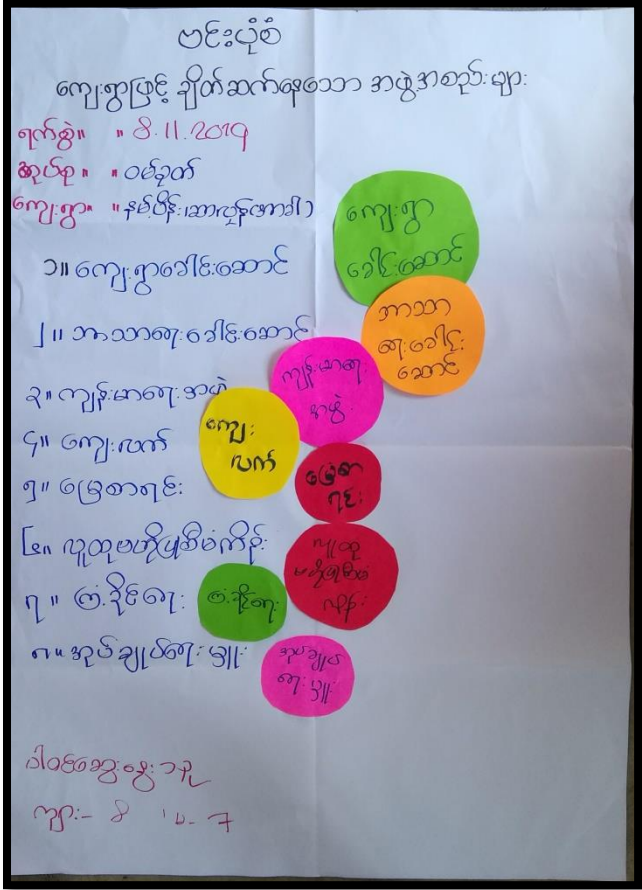 ဗင်းပုံစံ
ကျေးရွာဖြင့် ချိတ်ဆက်နေသော အဖွဲ့အစည်းများ
ရက်စွဲ။ ။ 8.11.2019
အုပ်စု ။ ။ ဝမ်ခုတ်
ကျေးရွာ ။ ။ နမ့်ပိန်း
၁။ ကျေးရွာခေါင်းဆောင်
၂။ ဘာသာရေးခေါင်းဆောင်
၃။ ကျန်းမာရေးအဖွဲ့
၄။ ကျေးလက်
၅။ မြေစာရင်း
၆။ လူထုဗဟိုပြုစီမံကိန်း
၇။ ကြံ့ခိုင်ရေး
၈။ အုပ်ချုပ်ရေးမှူး
ကျေးရွာ
ခေါင်းဆောင်
ဘာသာ
ရေးခေါင်း
ဆောင်
ကျန်းမာရေး
အဖွဲ့
ကျေး
လက်
မြေစာ
ရင်း
လူထု
ဗဟိုပြုစီမံ
ကိန်း
ကြံ့ခိုင်ရေး
အုပ်ချုပ်
ရေးမှူး
ပါဝင်ဆွေးနွေးသူ
ကျား - 8 မ - 7